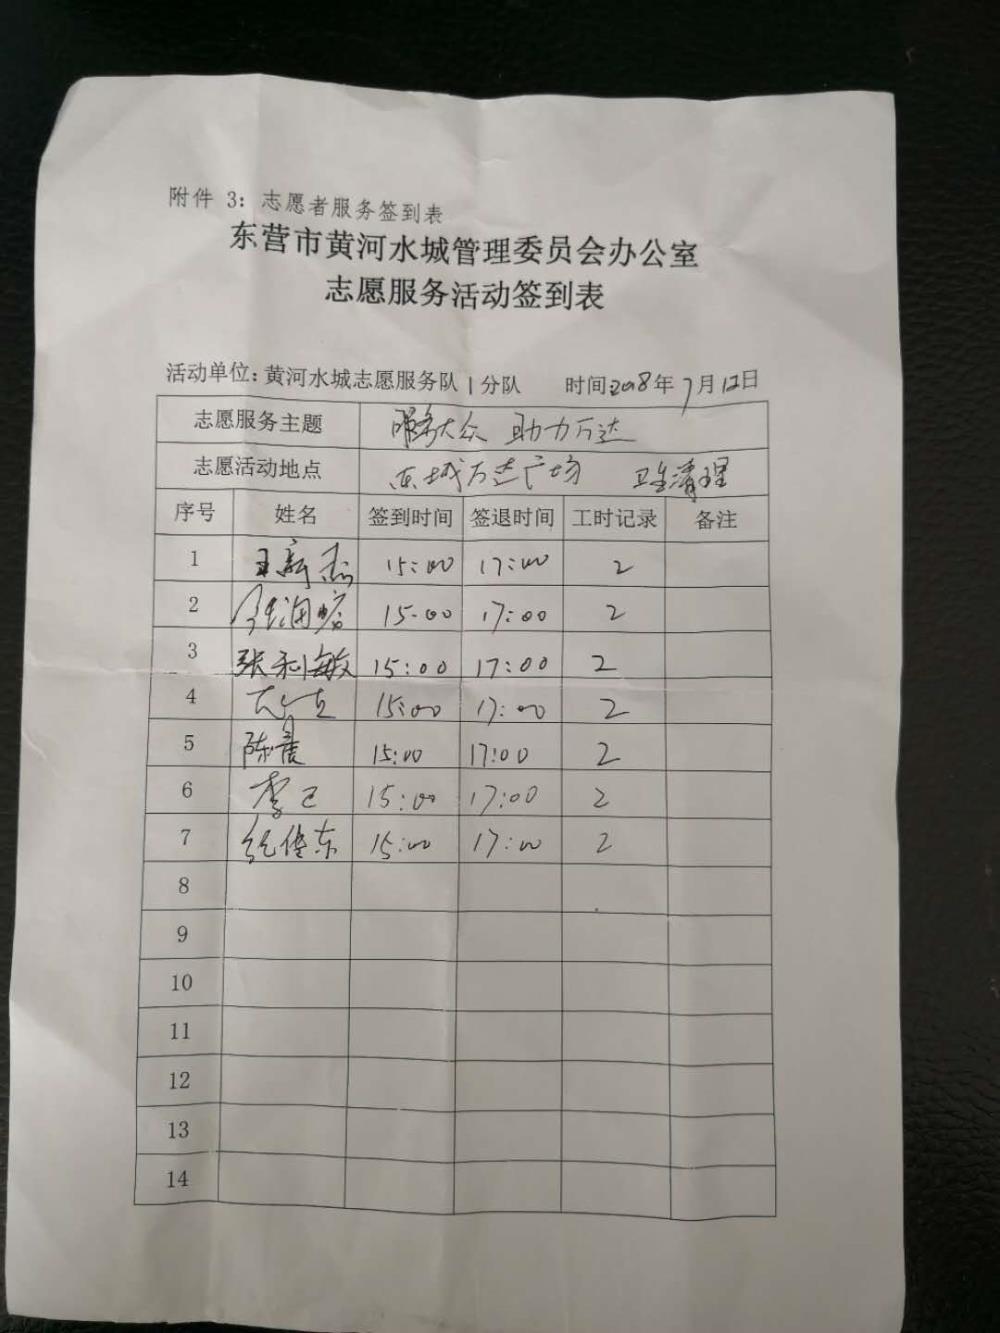 附件 3：志愿者服务签到表
东营市黄河水城管理委员会办公室
志愿服务活动签到表
活动单位：黄河水城志愿服务队 1 分队 时间 2018 年 7 月 12 日
志愿服务主题 服务大众 助力万达
志愿活动地点 东城万达广场 卫生清理
序号 姓名 签到时间 签退时间 工时记录 备注
1 王新杰 15:00 17:00 2
2 15:00 17:00 2
3 张利敏 15:00 17:00 2
4 15:00 17:00 2
5 陈晨 15:00 17:00 2
6 李 15:00 17:00 2
7 15:00 17:00 2
8
9
10
11
12
13
14